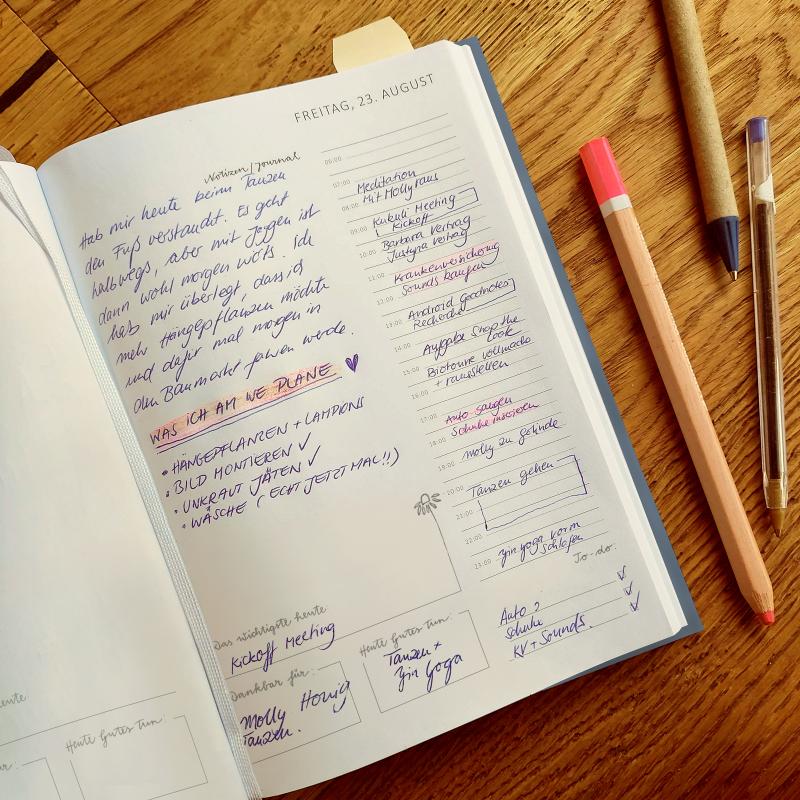 FREITAG, 23. AUGUST
Notizen / Journal
Hab mir heute beim Tanzen
den Fuß verstaucht. Es geht
halbwegs, aber mit Joggen ist
dann wohl morgen nix. Ich
hab mir überlegt, dass ich
mehr Hängepflanzen möchte
und dafür mal morgen in
den Baumarkt fahren werde.
WAS ICH AM WE PLANE
• HÄNGEPFLANZEN + LAMPIONS
• BILD MONTIEREN ✓
• UNKRAUT JÄTEN ✓
• WÄSCHE (ECHT JETZT MAL!!)
06:00
07:00 Meditation
08:00 Mit Molly raus
Kukuli Meeting
09:00 Kickoff
10:00 Barbara Vertrag
Justyna Vertrag
11:00 Krankenversicherung
12:00 Sounds kaufen
Android Goodnotes
13:00 Recherche
14:00 Aufgabe Shop the
Look
15:00 Biotonne vollmachen
16:00 + rausstellen
17:00 Auto saugen
18:00 Schuhe
19:00 Molly zu
20:00 Tanzen gehen
21:00
22:00
23:00 Yin Yoga vorm
Schlafen
To-do:
Auto ? ✓
Schuhe ✓
KV + Sounds. ✓
Das wichtigste heute:
Kickoff Meeting
Dankbar für:
Molly Honig
Tanzen.
Heute Gutes tun:
Tanzen +
Yin Yoga
eute
ar für:
Heute Gutes tun: